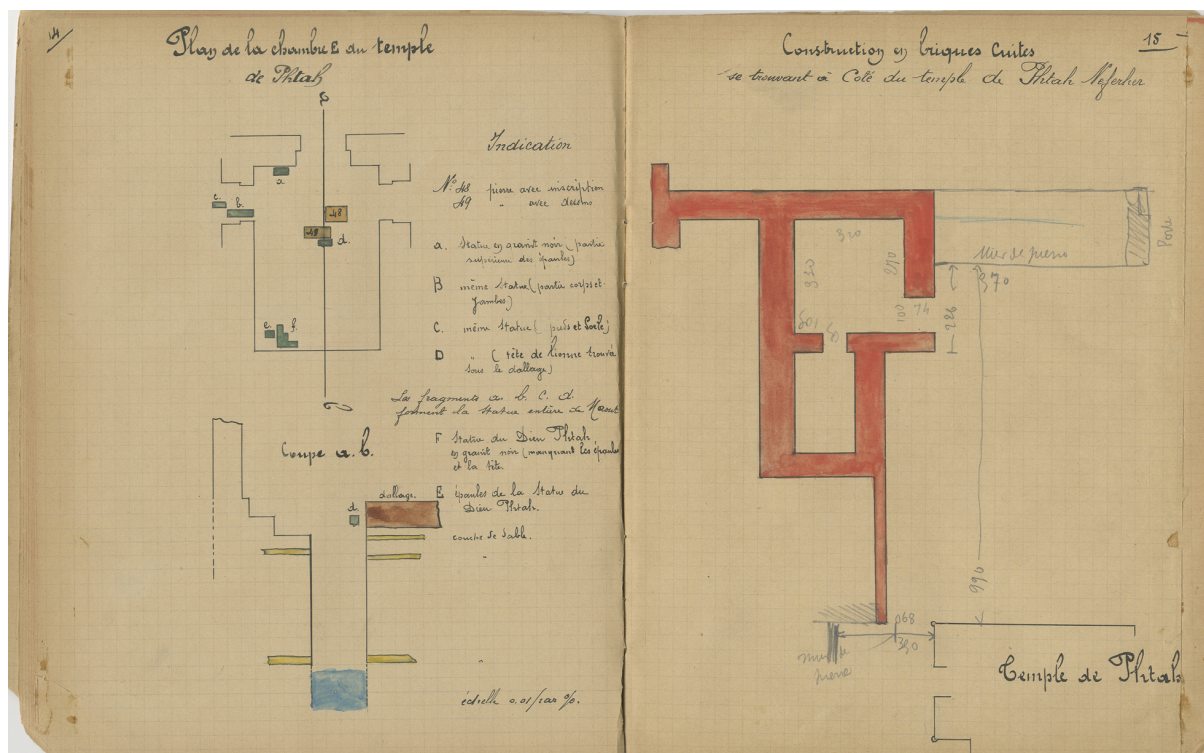 14
Plan de la chambre E du temple
de Phtah
a
c. b.
48
49 d.
e. f.
Indication
No. 48 pierre avec inscription
49 " avec dessins
a. Statue en granit noir (partie
supérieur des épaules)
B même Statue (partie corps et
Jambes)
C. même Statue ( pieds et Socle)
D " (tête de lionne trouvé
sous le dallage)
Les fragments a. b. c. d.
forment la statue entière de
F Statue du Dieu Phtah
en granit noir (manquant les épaules
et la tête.
E épaules de la Statue du
Dieu Phtah.
Coupe a. b.
dallage.
d.
couche de Sable.
"
"
échelle 0.01 par
15
Construction en briques Cuites
se trouvant à Côté du temple de Phtah Neferher
320
330
290
100
74
286
370
Porte
990
068
350
mur de
pierre
Temple de Phtah